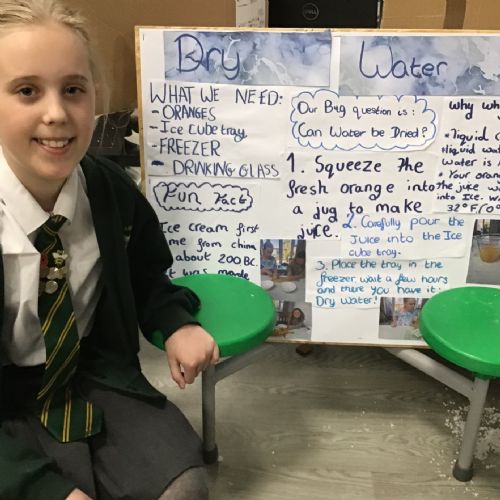 DELL
Dry Water
WHAT WE NEED:
- ORANGES
- Ice cube tray
- FREEZER
- DRINKING GLASS
Fun Fact
Ice cream first
me from china
about 200 BC.
t was made
Our Big question is:
Can Water be Dried?
1. Squeeze the
fresh orange into
a jug to make
juice.
2. Carefully pour the
Juice into the Ice
cube tray.
3. Place the tray in the
freezer, wait a few hours
and there you have it:
Dry Water!
Why wh
liquid c
liquid wat
water is
Your oran
the juice w
into Ice. W
32°F/0°